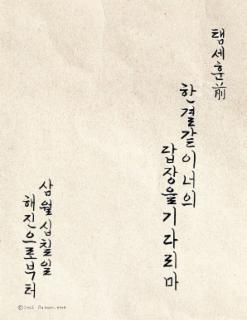 탬세훈前
한결같이 너의
답장을 기다리마
삼월 십칠일
해진으로부터